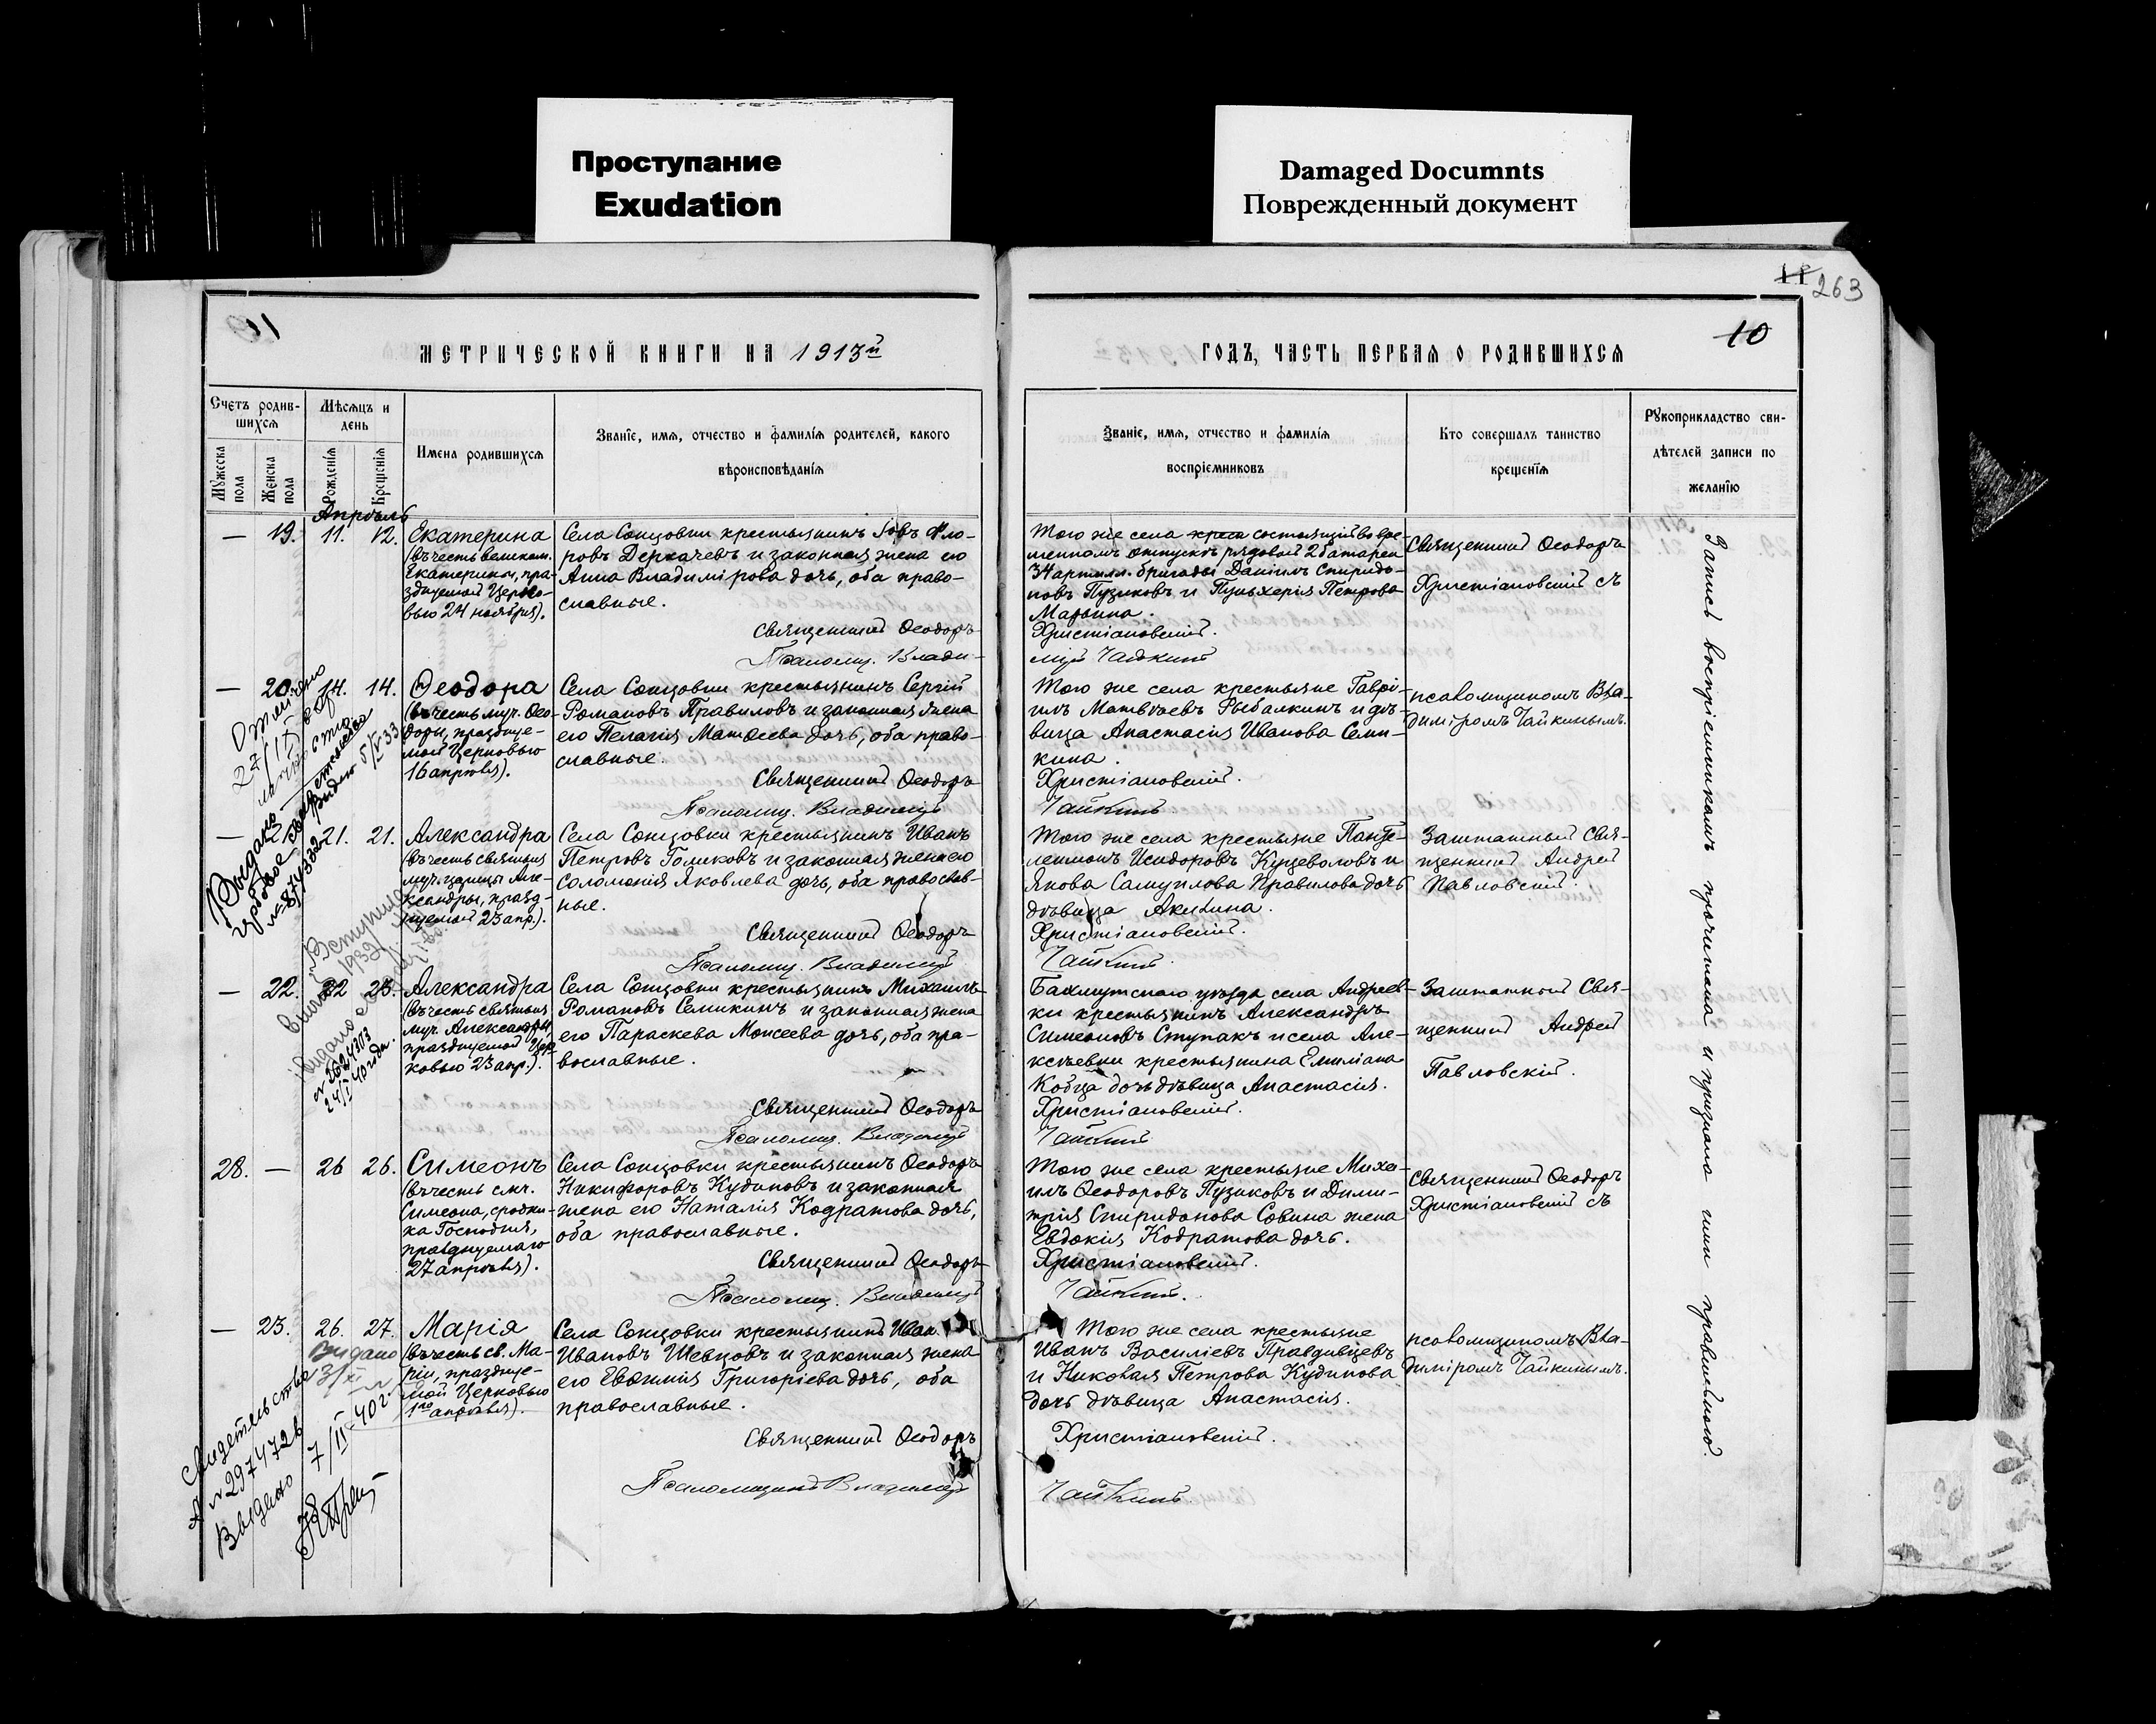 Проступание
Exudation
Damaged Documnts
Поврежденный документ
11
263
10
МЕТРИЧЕСКОЙ КНИГИ НА 1913й
ГОДЪ, ЧАСТЬ ПЕРВАЯ О РОДИВШИХСЯ
Счетъ родив-
шихся
Мѣсяцъ и
день
Мужеска
пола
Женска
пола
Рожденія
Крещенія
Имена родившихся
Званіе, имя, отчество и фамилія родителей, какого
вѣроисповѣданія
Званіе, имя, отчество и фамилія
воспріемниковъ
Кто совершалъ таинство
крещенія
Рукоприкладство сви-
дѣтелей записи по
желанію
Апрѣль
— 19. 11. 12.
Екатерина
(въ честь великом.
Екатерины, пра-
зднуемой Церко-
вью 24 ноября).
Села Сонцовки крестьянинъ Іовъ Фло-
ровъ Деркачевъ и законная жена его
Анна Владимірова дочь, оба право-
славные.
Священникъ Ѳеодоръ
Псаломщ. Влади-
Того же села состоящій во вре-
менномъ отпускѣ рядовой 2 батареи
34 артилл. бригады Даніилъ Спиридо-
новъ Пузиковъ и Пульхерія Петрова
Марьина.
Христіановскій.
міръ Чайкинъ
Священникъ Ѳеодоръ
Христіановскій съ
— 20. 14. 14.
Ѳеодора
(въ честь муч. Ѳео-
доры, праздкуе-
мой Церковью
16 апрѣля).
Села Сонцовки крестьянинъ Сергій
Романовъ Правиловъ и законная жена
его Пелагія Матѳеева дочь, оба право-
славные.
Священникъ Ѳеодоръ
Псаломщ. Владиміръ
Того же села крестьяне Гаврі-
илъ Матвѣевъ Рыбалкинъ и дѣ-
вица Анастасія Иванова Семи-
кина.
Христіановскій.
Чайкинъ
псаломщикомъ Вла-
диміромъ Чайкинымъ.
— 21. 21. 21.
Александра
(въ честь святыя
муч. царицы Але-
ксандры, празд-
нуемой 23 апр.).
Села Сонцовки крестьянинъ Иванъ
Петровъ Голиковъ и законная жена его
Соломонія Яковлева дочь, оба православ-
ные.
Священникъ Ѳеодоръ
Псаломщ. Владиміръ
Того же села крестьяне Панте-
леимонъ Исидоровъ Куцеволовъ и
Якова Самуилова Правилова дочь
дѣвица Акилина.
Христіановскій.
Чайкинъ.
Заштатный Свя-
щенникъ Андрей
Павловскій.
— 22. 22 23.
Александра
(въ честь святыя
муч. Александры,
празднуемой Цер-
ковью 23 апр.).
Села Сонцовки крестьянинъ Михаилъ
Романовъ Семикинъ и законная жена
его Параскева Моисеева дочь, оба пра-
вославные.
Священникъ Ѳеодоръ
Псаломщ. Владиміръ
Бахмутскаго уѣзда села Андреев-
ки крестьянинъ Александръ
Симеоновъ Ступакъ и села Але-
ксѣевки крестьянина Емиліана
Кобца дочь дѣвица Анастасія.
Христіановскій.
Чайкинъ
Заштатный Свя-
щенникъ Андрей
Павловскій.
28. — 26 26.
Симеонъ
(въ честь смч.
Симеона, сродни-
ка Господня,
празднуемаго
27 апрѣля).
Села Сонцовки крестьянинъ Ѳеодоръ
Никифоровъ Кудиновъ и законная
жена его Наталія Кодратова дочь,
оба православные.
Священникъ Ѳеодоръ
Псаломщ. Владиміръ
Того же села крестьяне Миха-
илъ Ѳеодоровъ Пузиковъ и Дими-
трія Спиридонова Совина жена
Евдокія Кодратова дочь.
Христіановскій.
Чайкинъ.
Священникъ Ѳеодоръ
Христіановскій съ
— 23. 26. 27.
Марія
(въ честь св. Ма-
ріи, праздкуе-
мой Церковью
1го апрѣля).
Села Сонцовки крестьянинъ Иван
Ивановъ Шевцовъ и законная жена
его Евѳимія Григоріева дочь, оба
православные.
Священникъ Ѳеодоръ
Псаломщикъ Владиміръ
Того же села крестьяне
Иванъ Василіевъ Правдивцевъ
и Николая Петрова Кудинова
дочь дѣвица Анастасія.
Христіановскій.
Чайкинъ.
псаломщикомъ Вла-
диміромъ Чайкинымъ.
Запись воспріемникамъ прочитана и признана ими правильною.
Выдано
24/I 40 года.
Выдано
Свидетельство
№ 297472
Выдано 7/II–40г.